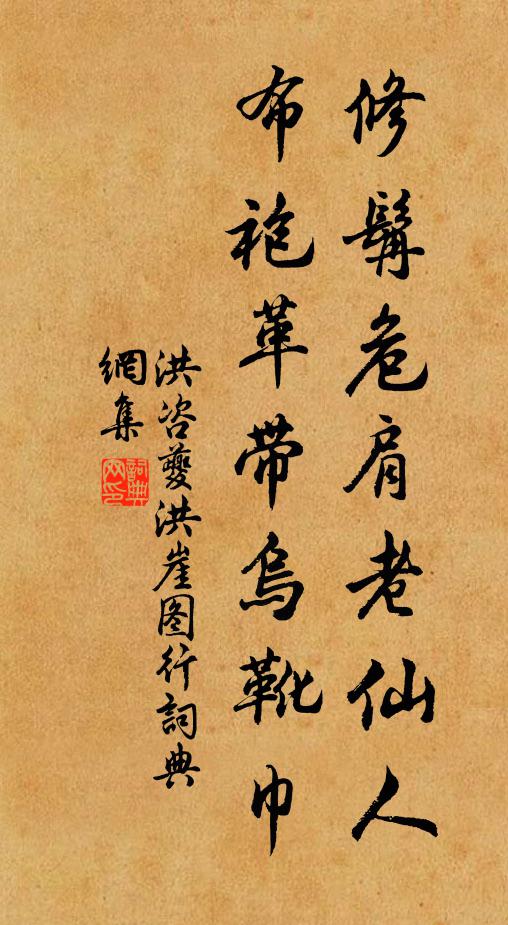 修髯危肩老仙人
布袍革带烏靴巾
洪咨夔洪崖图行詞典
網集
詞典
网印